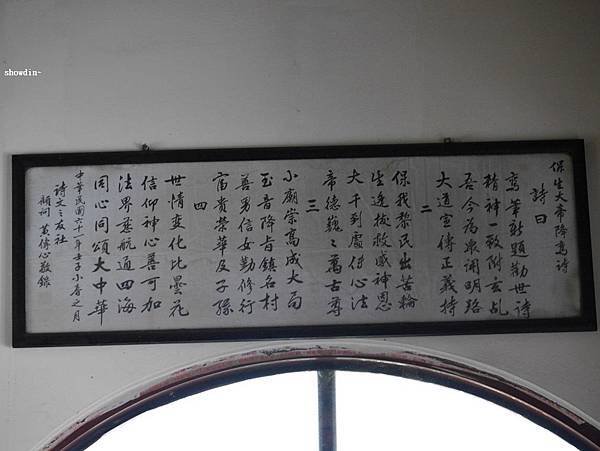 showdin~
保生大帝降鸞詩
詩曰
鸞筆新題勸世詩
精神一致附玄乩
吾今為眾開明路
大道宣傳正義持
二
保我黎民出苦輪
生逢拔救感神恩
大千到處傳心法
帝德巍々萬古尊
三
小廟崇高成大局
玉音降旨鎮名村
善男信女勤修行
富貴榮華及子孫
四
世情變化比曇花
信仰神心善可加
法界慈航通四海
同心同頌大中華
中華民國六十一年壬子小春之月
詩文之友社
顧問 黃傳心敬錄